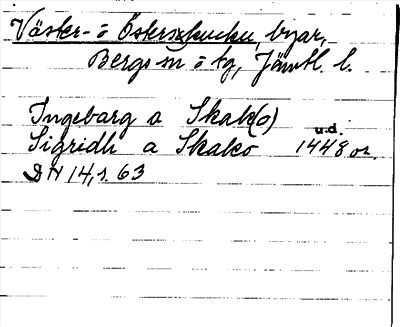 Väster- o Österskucku, byar,
Bergs sn o tg, Jämtl. l.
Ingebarg a Skak(o)
Sigridh a Skako u.d. 1448 or.
DN 14, s. 63